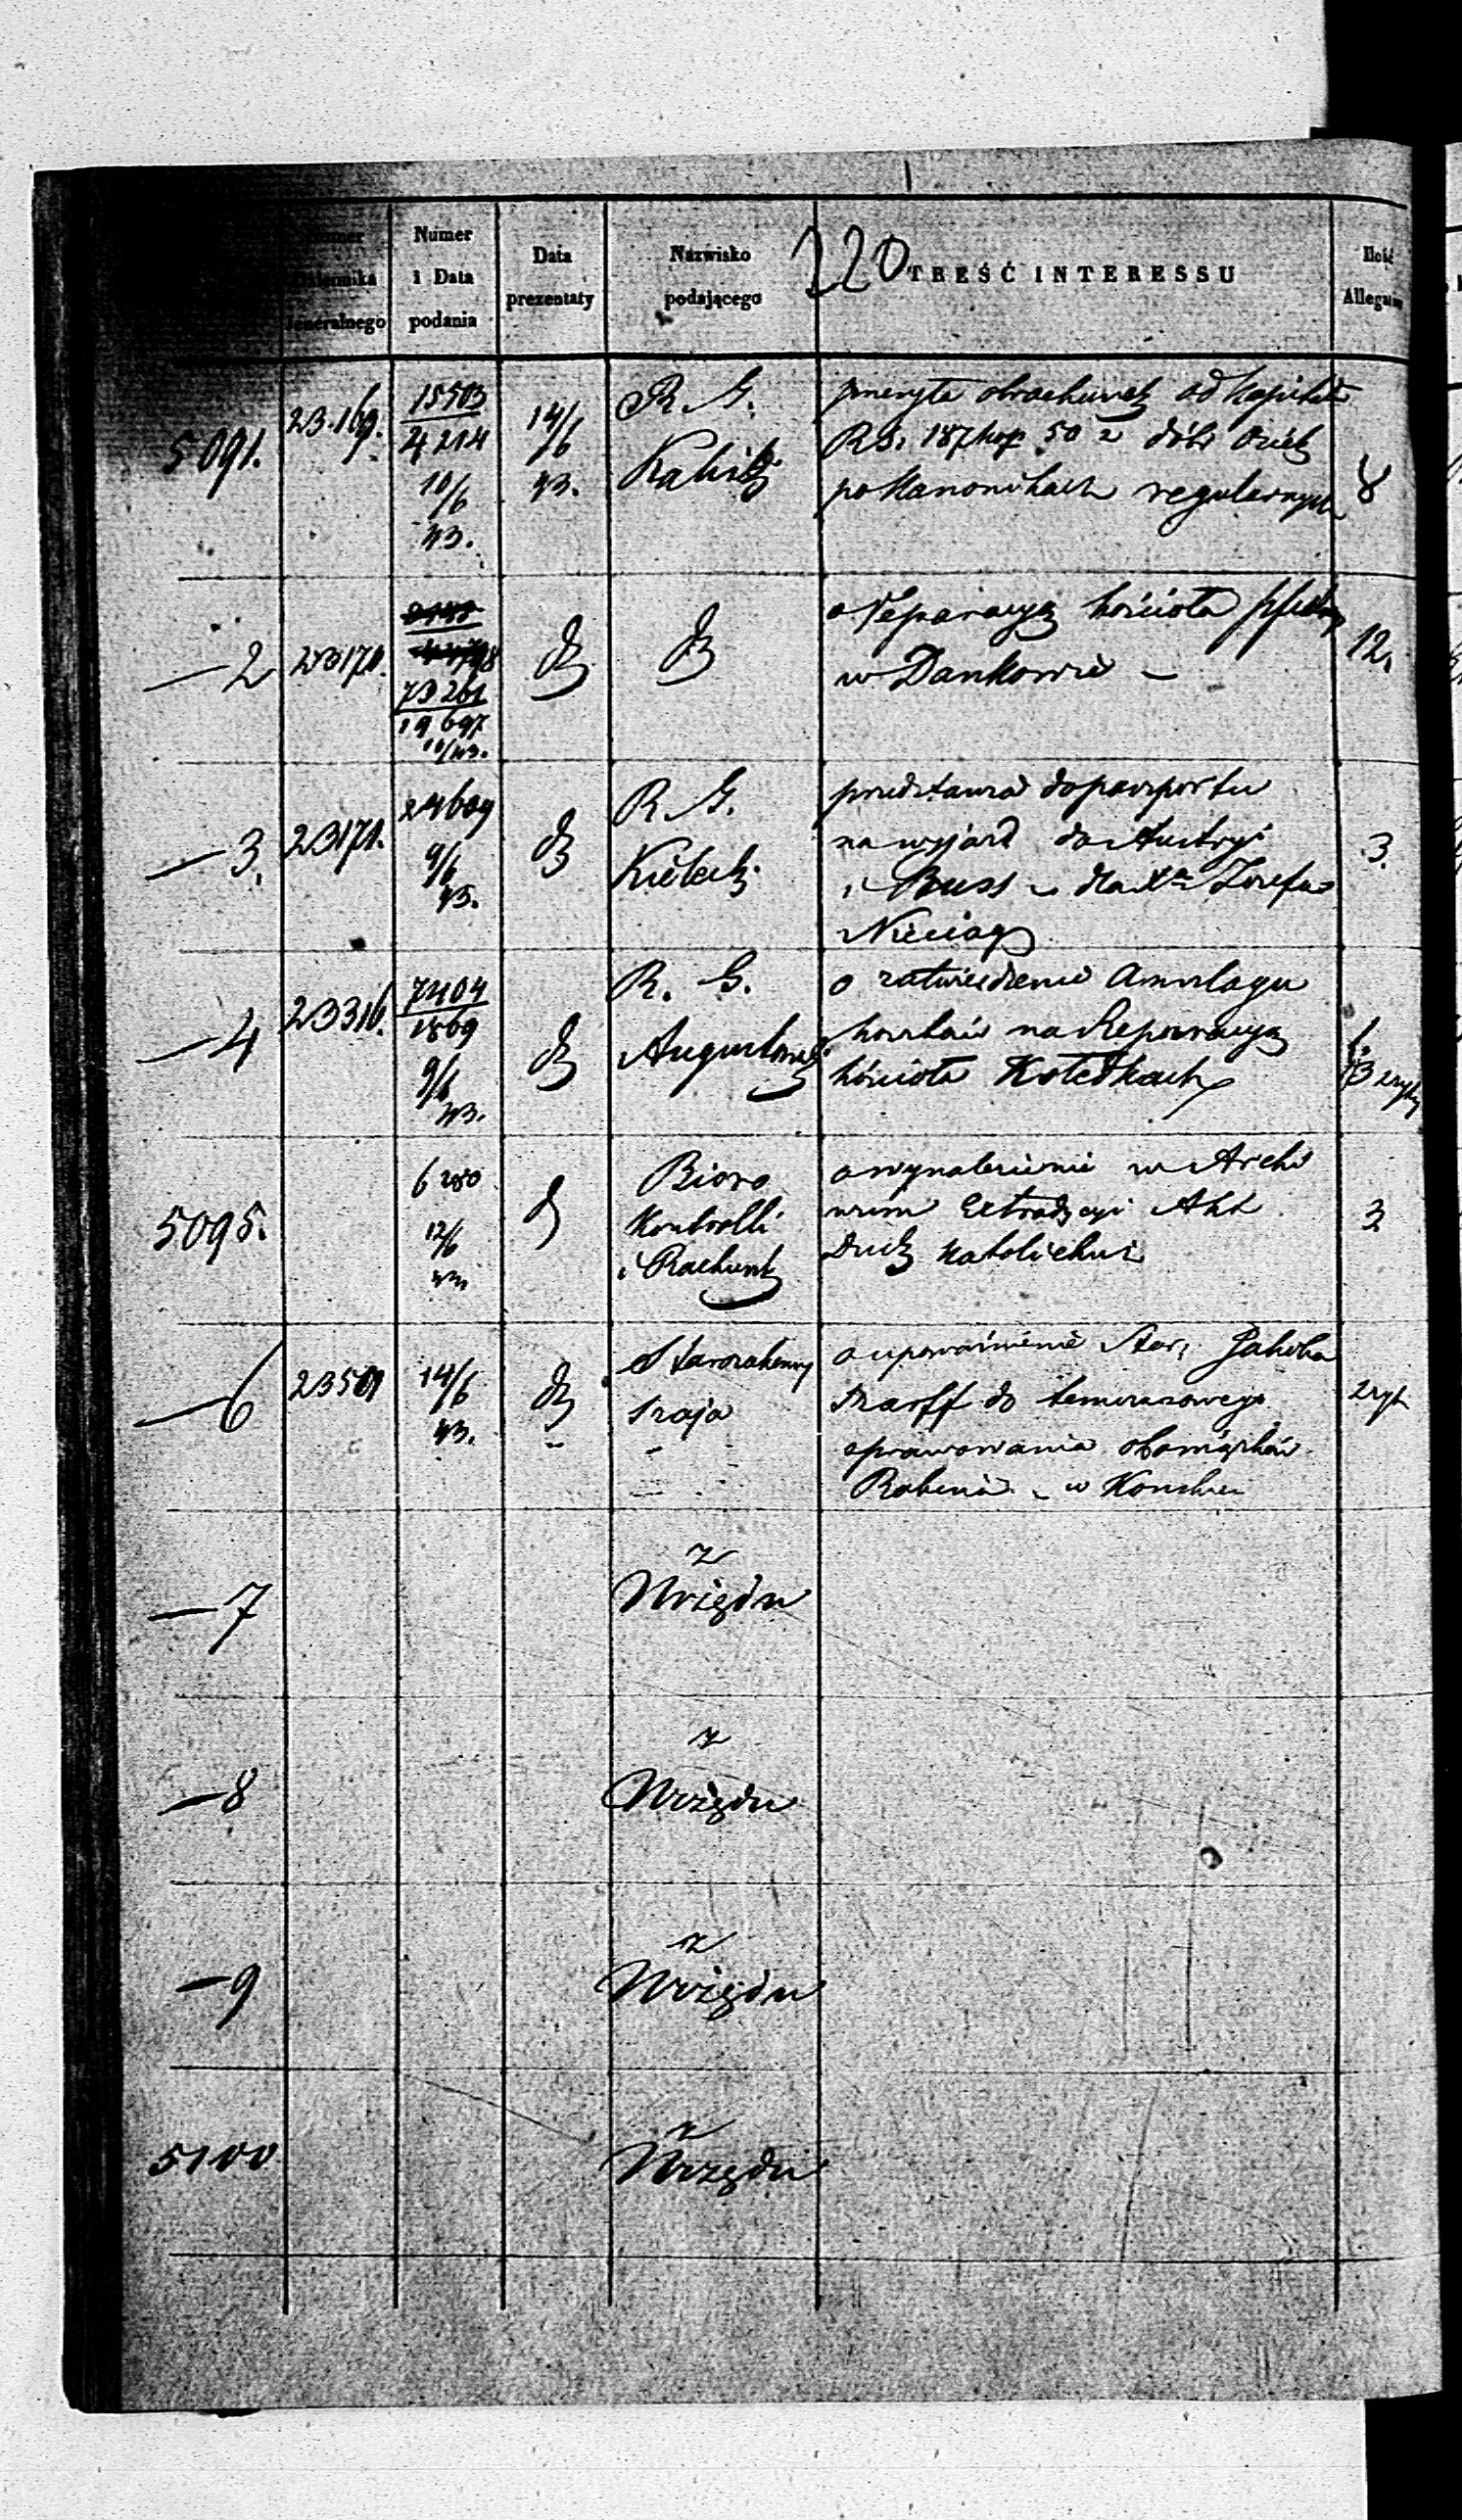 220
Numer
Dziennika
Jeneralnego
Numer
i Data
podania
Data
prezentaty
Nazwisko
podającego
TREŚĆ INTERESSU
Ilość
Allegatów
5091.
23.169.
15503
4214
10/6
43.
14/6
43.
R. G.
Kaliski
obrachunek od kapitału
RS. 187 kop 50 z dóbr
po Kanonikach regularnych
8
—2
23170.
73261
19697
10/43.
o Reparacyą kościoła
w Dankowie —
12.
—3.
23171.
24609
9/6
43.
R. G.
Kielecki
przedstawia do paszportu
na wyjazd do Austryi
i Pruss — dla Xa Józefa
Nieciąg
3.
—4
23316.
7404
1869
9/6
43.
R. G.
Augustowski
o zatwierdzenie Anszlagu
kosztów na Reperacyą
kościoła
5095.
6280
12/6
43
Bióro
Kontrolli
i Rachunk
o wynalezienie w Archi
wum Extradycyi Akt
Duch Katolickie
3
—6
23501
14/6
43.
Starozakonny
Szaja
o upoważnienie Star. Jakóba
Szarff do tymczasowego
sprawowania obowiązków
Rabina — w Koniecu
—7
z
Urzędu
—8
z
Urzędu
—9
z
Urzędu
5100
z
Urzędu